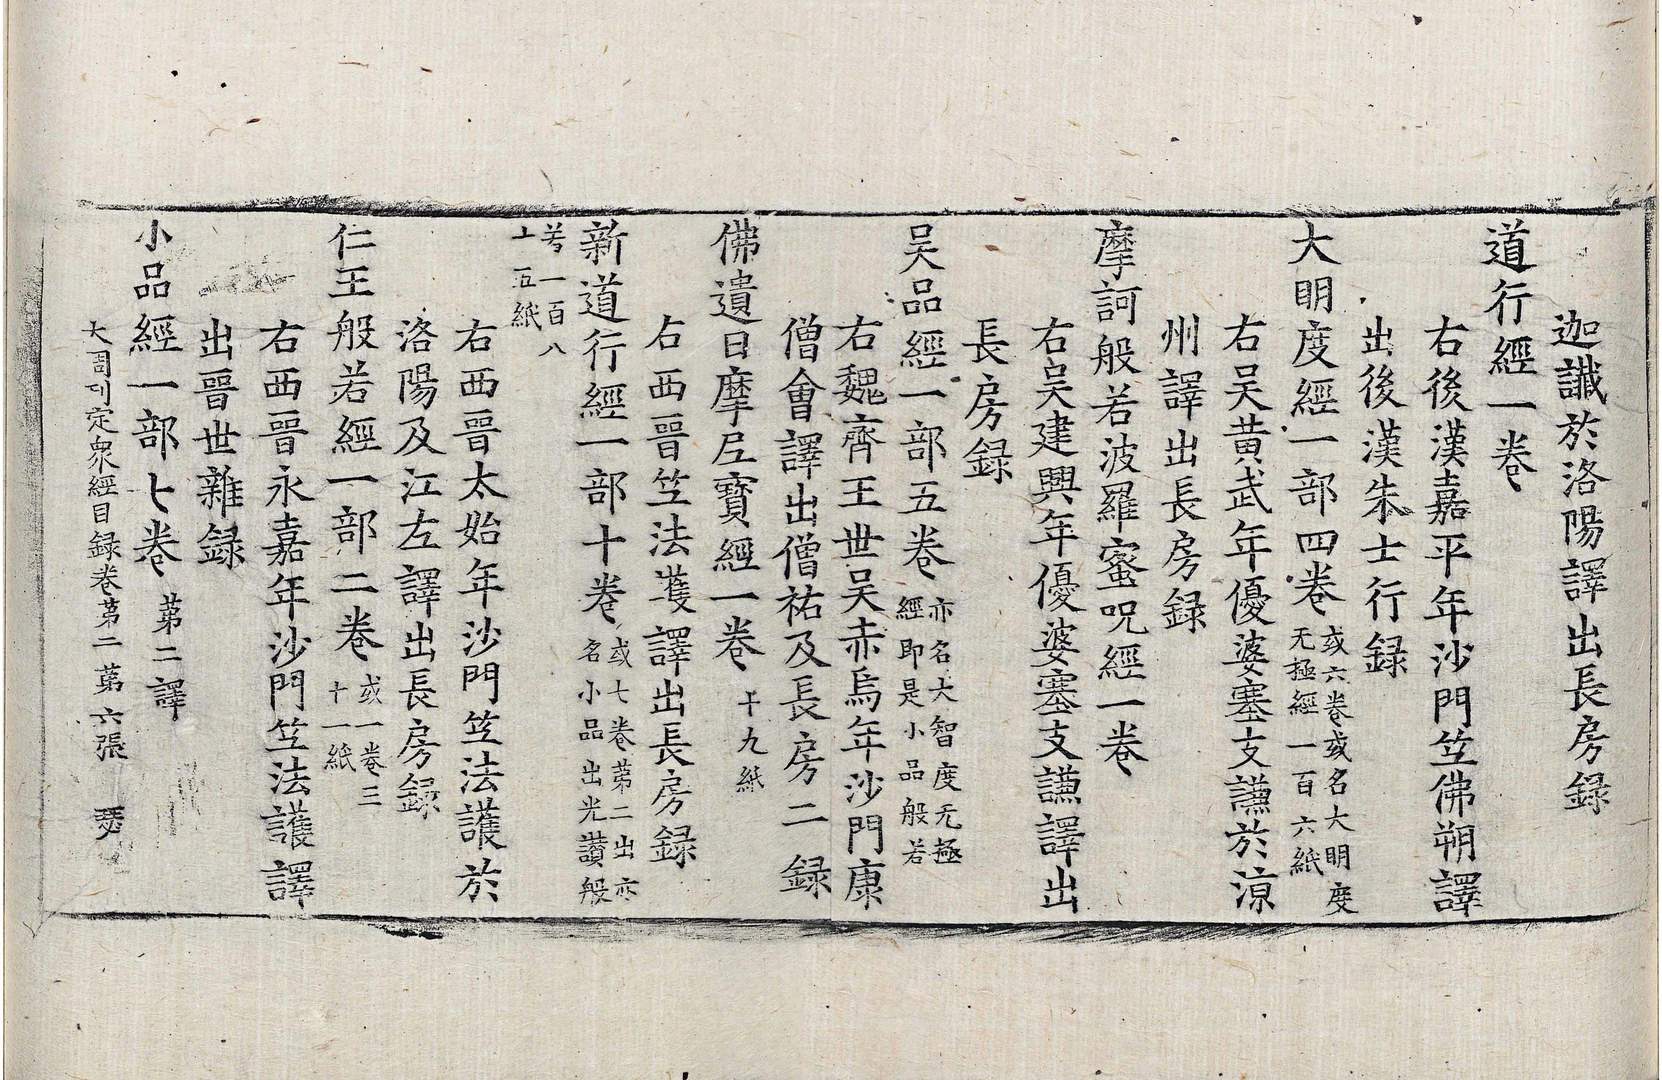 迦讖於洛陽譯出長房録
道行經一卷
右後漢嘉平年沙門笁佛朔譯
出後漢朱士行録
大明度經一部四卷 或六卷或名大明度
无極經一百六紙
右吴黄武年優婆塞支謙於涼
州譯出長房録
摩訶般若波羅蜜呪經一卷
右吴建興年優婆塞支謙譯出
長房録
吴品經一部五卷 亦名大智度无極
經即是小品般若
右魏齊王世吴赤烏年沙門康
僧會譯出僧祐及長房二録
佛遺日摩尼寳經一卷 十九紙
右西晉笁法護譯出長房録
新道行經一部十卷 或七卷苐二出亦
名小品出光讃般
若一百八
十五紙
右西晉太始年沙門笁法護於
洛陽及江左譯出長房録
仁王般若經一部二卷 或一卷三
十一紙
右西晉永嘉年沙門笁法護譯
出晉世雜録
小品經一部七卷 苐二譯
大周刊定衆經目録卷苐二 苐六張 瑟